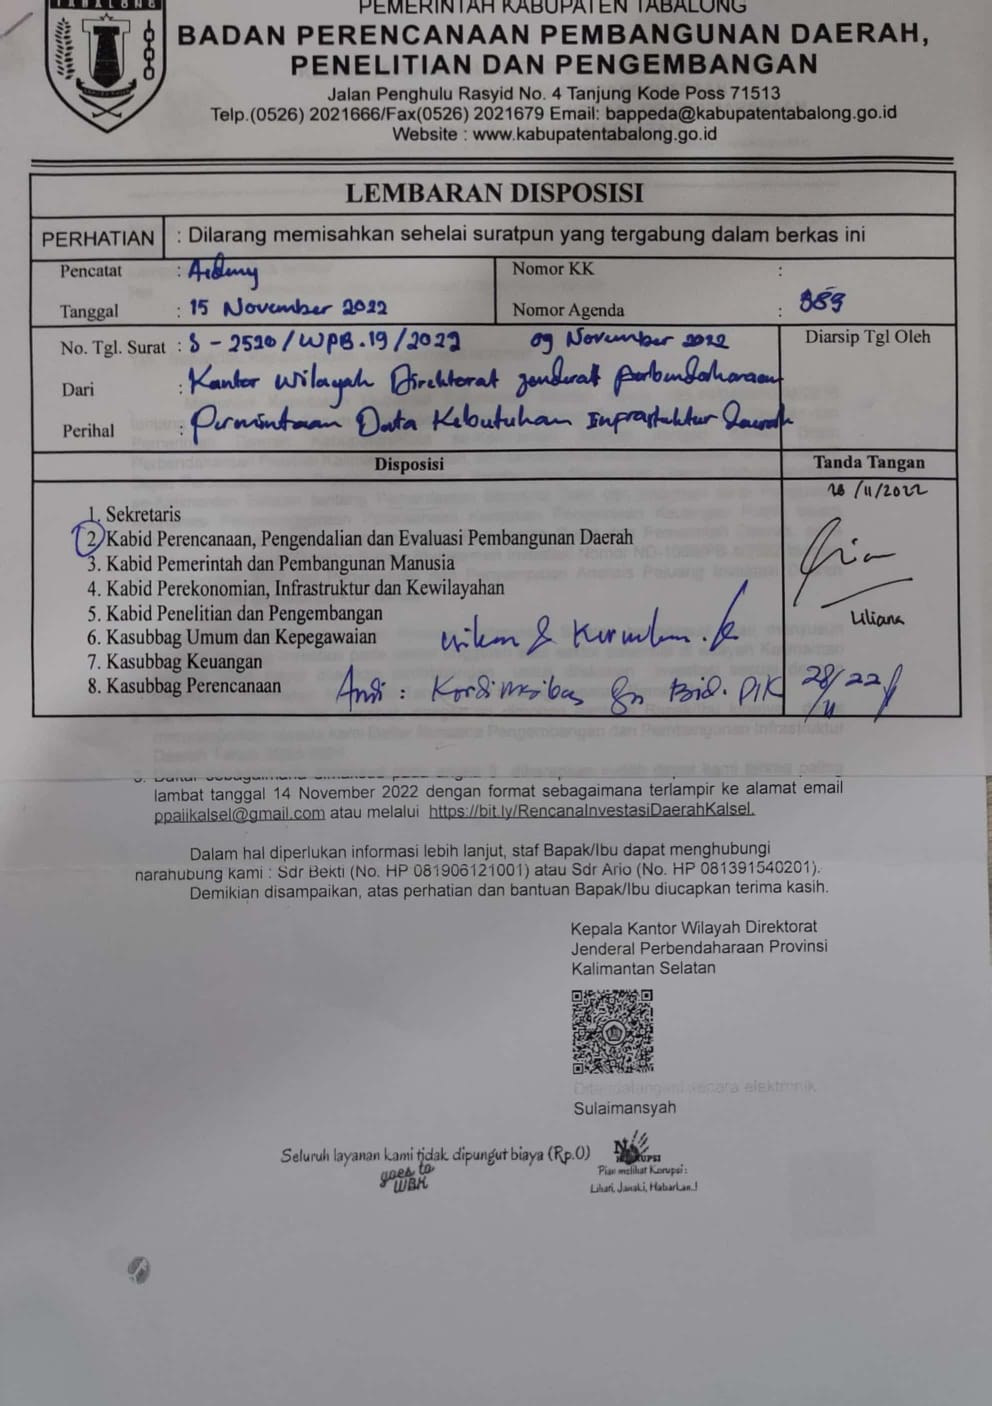 TABALONG
PEMERINTAH KABUPATEN TABALONG
BADAN PERENCANAAN PEMBANGUNAN DAERAH,
PENELITIAN DAN PENGEMBANGAN
Jalan Penghulu Rasyid No. 4 Tanjung Kode Poss 71513
Telp.(0526) 2021666/Fax(0526) 2021679 Email: bappeda@kabupatentabalong.go.id
Website : www.kabupatentabalong.go.id
LEMBARAN DISPOSISI
PERHATIAN : Dilarang memisahkan sehelai suratpun yang tergabung dalam berkas ini
Pencatat :
Nomor KK :
Tanggal : 15 November 2022
Nomor Agenda : 989
No. Tgl. Surat : S - 2520/WPB.19/2022 09 November 2022
Diarsip Tgl Oleh
Dari : Kantor Wilayah Direktorat Jenderal perbendaharaan
Perihal : Permintaan Data Kebutuhan Infrastuktur Daerah
Disposisi
Tanda Tangan
28/11/2022
1. Sekretaris
2. Kabid Perencanaan, Pengendalian dan Evaluasi Pembangunan Daerah
3. Kabid Pemerintah dan Pembangunan Manusia
4. Kabid Perekonomian, Infrastruktur dan Kewilayahan
5. Kabid Penelitian dan Pengembangan
6. Kasubbag Umum dan Kepegawaian
7. Kasubbag Keuangan
8. Kasubbag Perencanaan
Liliana
Andi : Kordinasikan Bid. PIK
28/11 22
lambat tanggal 14 November 2022 dengan format sebagaimana terlampir ke alamat email
ppaiikalsel@gmail.com atau melalui https://bit.ly/RencanaInvestasiDaerahKalsel.
Dalam hal diperlukan informasi lebih lanjut, staf Bapak/Ibu dapat menghubungi
narahubung kami : Sdr Bekti (No. HP 081906121001) atau Sdr Ario (No. HP 081391540201).
Demikian disampaikan, atas perhatian dan bantuan Bapak/Ibu diucapkan terima kasih.
Kepala Kantor Wilayah Direktorat
Jenderal Perbendaharaan Provinsi
Kalimantan Selatan
Ditandatangani secara elektronik
Sulaimansyah
Seluruh layanan kami tidak dipungut biaya (Rp.0)
goes to
WBK
Pian melihat Korupsi :
Lihati, Janaki, Habarkan..!